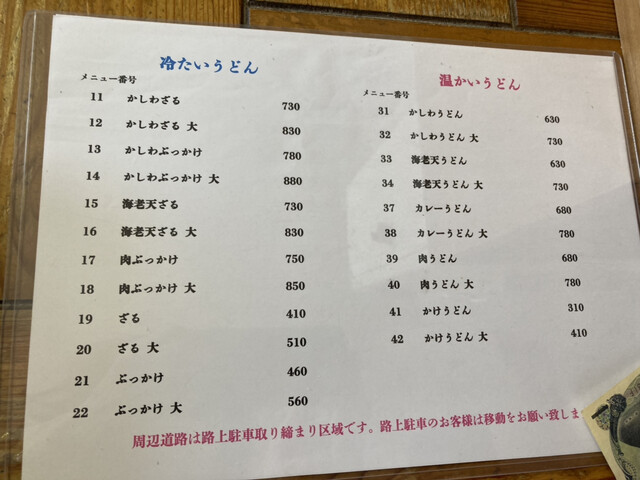 冷たいうどん
メニュー番号
11 かしわざる 730
12 かしわざる 大 830
13 かしわぶっかけ 780
14 かしわぶっかけ 大 880
15 海老天ざる 730
16 海老天ざる 大 830
17 肉ぶっかけ 750
18 肉ぶっかけ 大 850
19 ざる 410
20 ざる 大 510
21 ぶっかけ 460
22 ぶっかけ 大 560
温かいうどん
メニュー番号
31 かしわうどん 630
32 かしわうどん 大 730
33 海老天うどん 630
34 海老天うどん 大 730
37 カレーうどん 680
38 カレーうどん 大 780
39 肉うどん 680
40 肉うどん 大 780
41 かけうどん 310
42 かけうどん 大 410
周辺道路は路上駐車取り締まり区域です。路上駐車のお客様は移動をお願い致しま